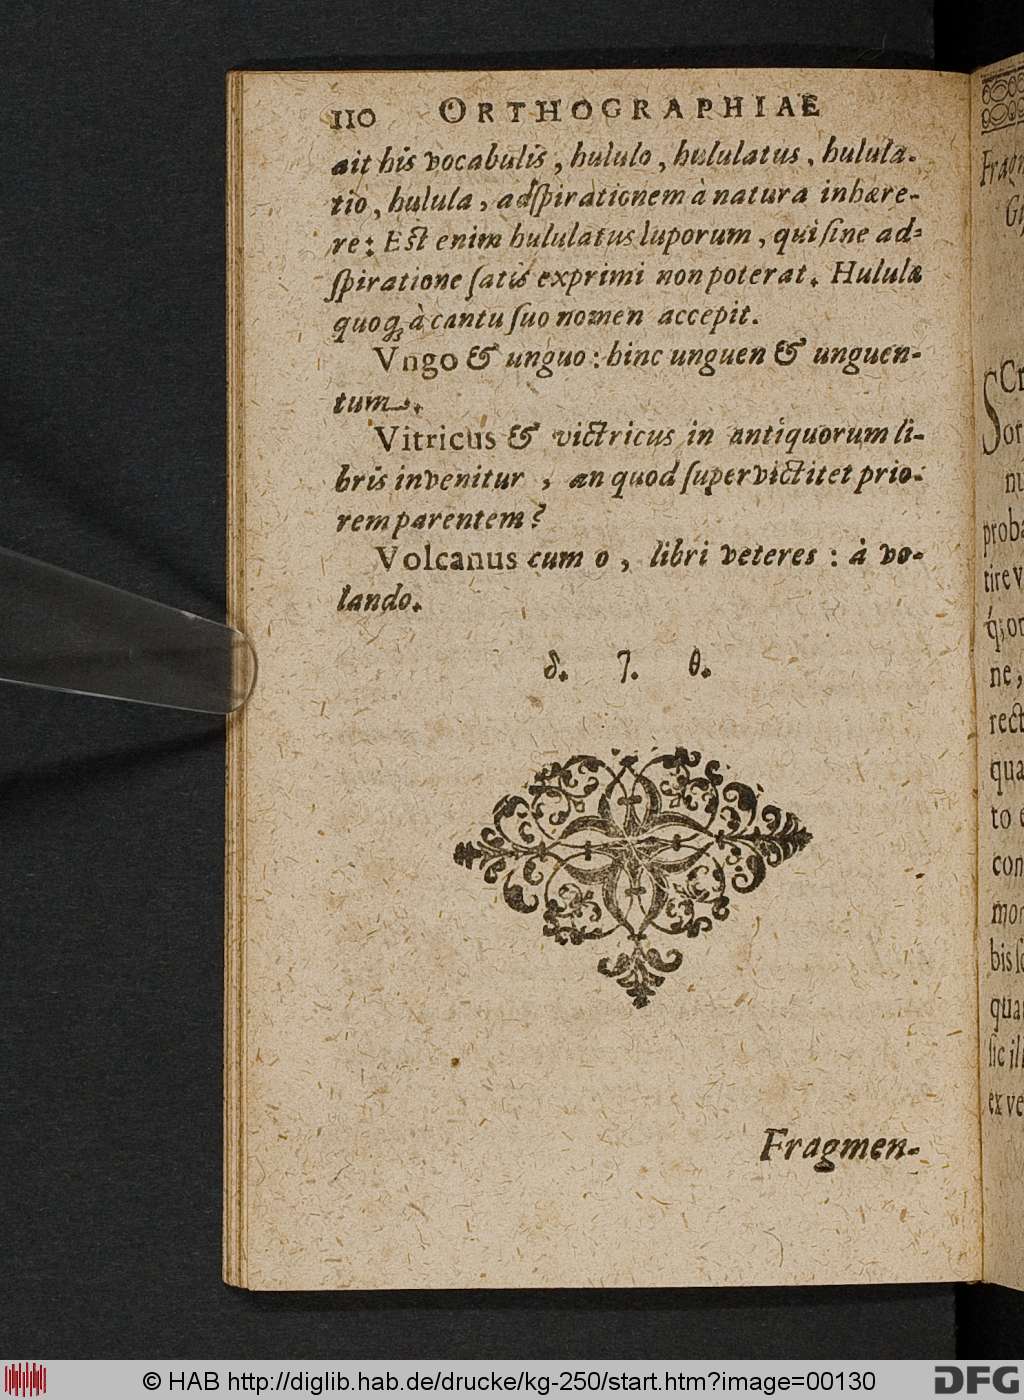 110 ORTHOGRAPHIAE
ait his vocabulis, hululo, hululatus, hulula-
tio, hulula, adſpirationem à natura inhære-
re: Eſt enim hululatus luporum, qui ſine ad-
ſpiratione ſatis exprimi non poterat. Hululæ
quoq; à cantu ſuo nomen accepit.
Vngo & unguo: hinc unguen & unguen-
tum.
Vitricus & victricus in antiquorum li-
bris invenitur, an quod ſupervictitet prio-
rem parentem?
Volcanus cum o, libri veteres: à vo-
lando.
δ. 7. θ.
Fragmen-
Fragm
SCr
probа
tire v
ne,
rect
qua
to
con
mor
bis ſo
quar
ſic ill
ex ve
© HAB http://diglib.hab.de/drucke/kg-250/start.htm?image=00130
DFG